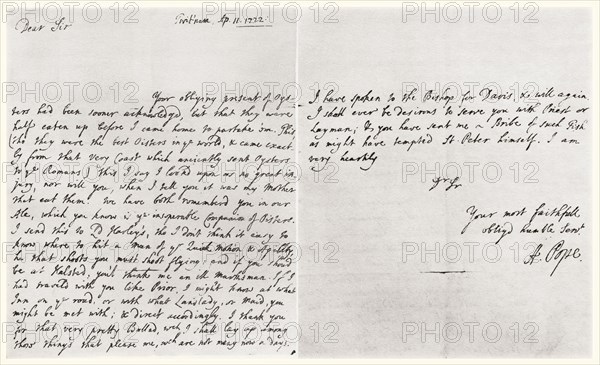 Dear Sir
Ap. 11. 1722.
Your obliging present of Oys-
ters had been sooner acknowledgd, but that they were
half eaten up before I came home to partake 'em. This
(tho they were the best Oisters in ye world, & came exact-
ly from that very Coast which anciently sent Oysters
to ye Romans) this I say I lookd upon as no great in-
jury, nor will you, when I tell you it was my Mother
that eat them. We have both rememberd you in our
Ale, which you know is ye inseparable Companion of Oisters.
I send this to Ld Harley's, tho I don't think it easy to
know where to hit a Man of yr Quick Motion & Agility
he that shoots you must shoot flying: and if you should
be at Halsted, you'll thinke me an ill Marksman. If I
had traveld with you like Prior, I might know at what
Inn on ye road, or with what Landlady, or Maid, you
might be met with; & direct accordingly. I thank you
for that very pretty Ballad, wch I shall lay up among
those things that please me, wch are not many now a days.
I have spoken to the Bishop for Davis, & will again
I shall ever be desirous to serve you with Priest or
Layman; & you have sent me a Bribe of such Fish
as might have tempted St. Peter himself. I am
very heartily
Dr Sr
Your most faithfull
obligd humble Servt
A. Pope.
PHOTO12